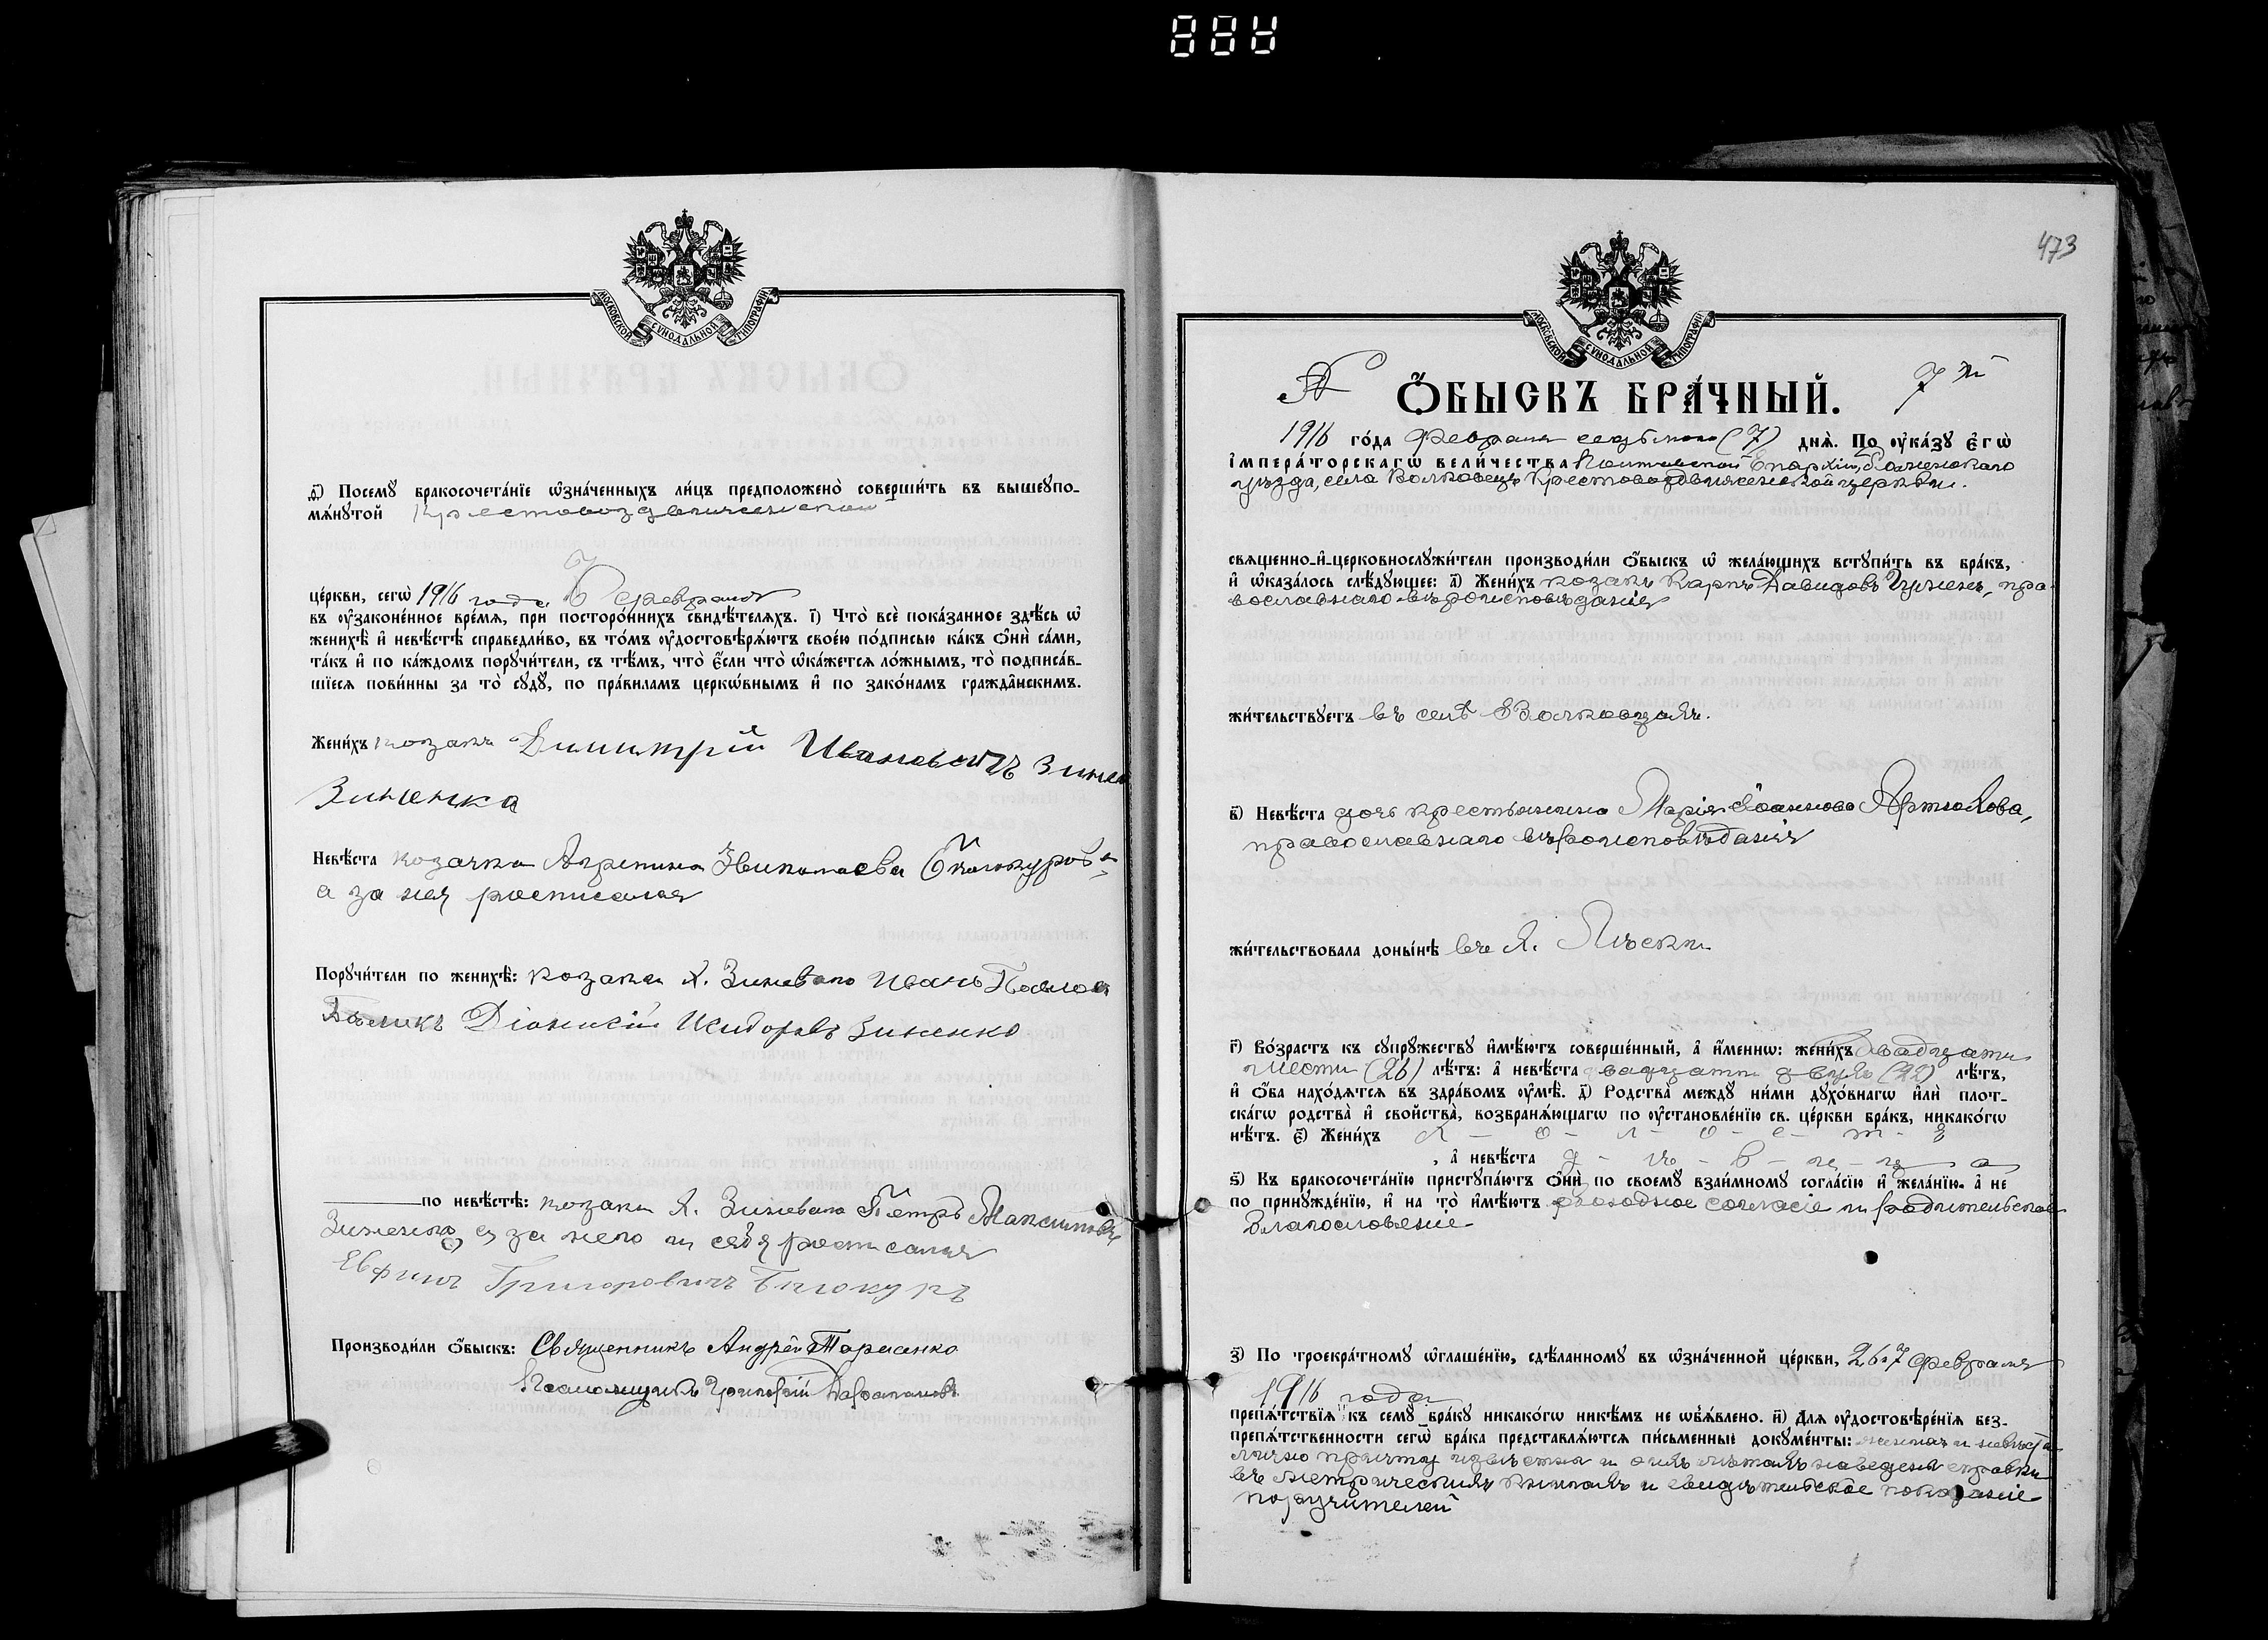 МОСКОВСКОЙ СУНОДАЛЬНОЙ ТИПОГРАФІИ
ѳ҃) Посемꙋ̀ бракосочета́нїе ѡ҆зна́ченныхъ ли́цъ предположено̀ соверши́ть въ вышеꙋпо-
мѧ́нꙋтой Крестовоздвиженской
це́ркви, сегѡ̀ 1916 года 7 февраля
въ ᲂу҆зако́ненное вре́мѧ, при посторо́ннихъ свидѣ́телѧхъ. і҃) Что̀ всѐ пока́занное здѣ́сь ѡ҆
женихѣ̀ и҆ невѣ́стѣ справедли́во, въ то́мъ ᲂу҆достовѣрѧ́ютъ свое́ю по́дписью ка́къ ѻ҆нѝ са́ми,
та́къ и҆ по ка́ждомъ порꙋчи́тели, съ тѣ́мъ, что̀ є҆́сли что̀ ѡ҆ка́жетсѧ ло́жнымъ, то̀ подписа́в-
шїесѧ пови́нны за то̀ сꙋдꙋ̀, по пра́виламъ церкѡ́внымъ и҆ по зако́намъ гражда̑нскимъ.
Жени́хъ козакъ Димитрій Ивановичъ Зинен
Зиненко
Невѣ́ста козачка Агрипина Николаева Билокурова
а за нея росписался
Порꙋчи́тели по женихѣ̀: козаки х. Зиневого Иванъ Павлов
Діонисій Исидоровъ Зиненко
по невѣ́стѣ: козаки х. Зинева Петръ Максимовъ
Зиненко, а за него и себя росписался
Евфимъ Григоровичъ Билокуръ
Производи́ли ѻ҆́быскъ: Священникъ Андрей Тарасенко
Псаломщикъ Григорій
473
МОСКОВСКОЙ СУНОДАЛЬНОЙ ТИПОГРАФІИ
7й
Ѻ҆́БЫСКЪ БРА́ЧНЫЙ.
1916 го́да Февраля седьмого (7) днѧ̀. По ᲂу҆ка́зꙋ є҆гѡ̀
і҆мпера́торскагѡ вели́чества Полтавской Епархіи, Роменскаго
уѣзда, села Волковецъ Крестовоздвиженской церкви.
свѧщенно-и҆-церковнослꙋжи́тели производи́ли ѻ҆́быскъ ѡ҆ жела́ющихъ встꙋпи́ть въ бра́къ,
и҆ ѡ҆каза́лось слѣ́дꙋющее: а҃) Жени́хъ козакъ Карпъ Давидовъ пра-
вославнаго вѣроисповѣданія
жи́тельствꙋетъ въ селѣ Волковцахъ.
в҃) Невѣ́ста дочь крестьянина Марія Іоаннова Артюхова,
православнаго вѣроисповѣданія
жи́тельствовала доны́нѣ въ х. Пѣски
г҃) Во́зрастъ къ сꙋпрꙋ́жествꙋ и҆мѣ́ютъ соверше́нный, а҆ и҆́меннѡ: жени́хъ двадцати
шести (26) лѣ́тъ: а҆ невѣ́ста двадцати двухъ (22) лѣ́тъ,
и҆ ѻ҆́ба нахо́дѧтсѧ въ здра́вомъ ᲂу҆мѣ̀. д҃) Родства̀ междꙋ ни́ми дꙋхо́внагѡ и҆лѝ плот-
ска́гѡ родства̀ и҆ сво́йства̀, возбранѧ́ющагѡ по ᲂу҆становле́нїю св. це́ркви бра́къ, никако́гѡ
нѣ́тъ. є҃) Жени́хъ х - о - л - о - с - т - ъ
, а҆ невѣ́ста д - ѣ - в - и - ц - а
ѕ҃) Къ бракосочета́нїю пристꙋпа́ютъ ѻ҆нѝ по своемꙋ̀ взаи́мномꙋ согла́сїю и҆ жела́нїю, а҆ не
по принꙋжде́нїю, и҆ на то̀ и҆мѣ́ютъ свободное согласіе и родительское
благословеніе
з҃) По троекра́тномꙋ ѡ҆глаше́нїю, сдѣ́ланномꙋ въ ѡ҆зна́ченной це́ркви, 2, 6 и 7 февраля
1916 года
препѧ́тствїѧ къ семꙋ̀ бра́кꙋ никако́гѡ никѣ́мъ не ѡ҆б̾ѧ́влено. и҃) Длѧ ᲂу҆достовѣре́нїѧ без-
препѧ́тственности сегѡ̀ бра́ка представлѧ́ютсѧ пи́сьменные докꙋме́нты: женихъ и невѣста
лично причту извѣстны и о ихъ лѣтахъ наведены справки
въ метрическихъ книгахъ и свидѣтельское показаніе
поручителей